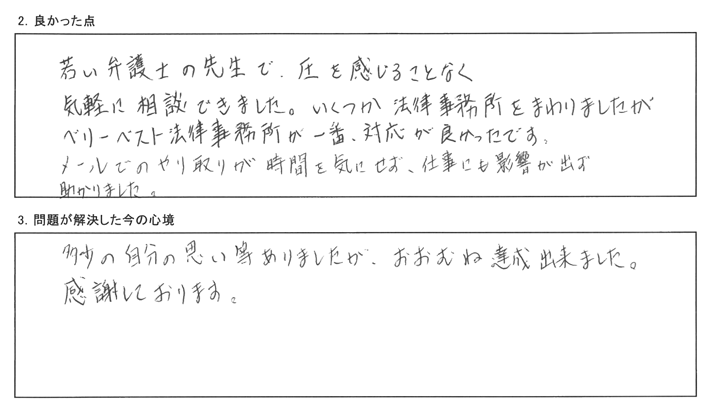 2. 良かった点
若い弁護士の先生で、圧を感じることなく
気軽に相談できました。いくつか法律事務所をまわりましたが
ベリーベスト法律事務所が一番、対応が良かったです。
メールでのやり取りが時間を気にせず、仕事にも影響が出ず
助かりました。
3. 問題が解決した今の心境
多少の自分の思い等ありましたが、おおむね達成出来ました。
感謝しております。